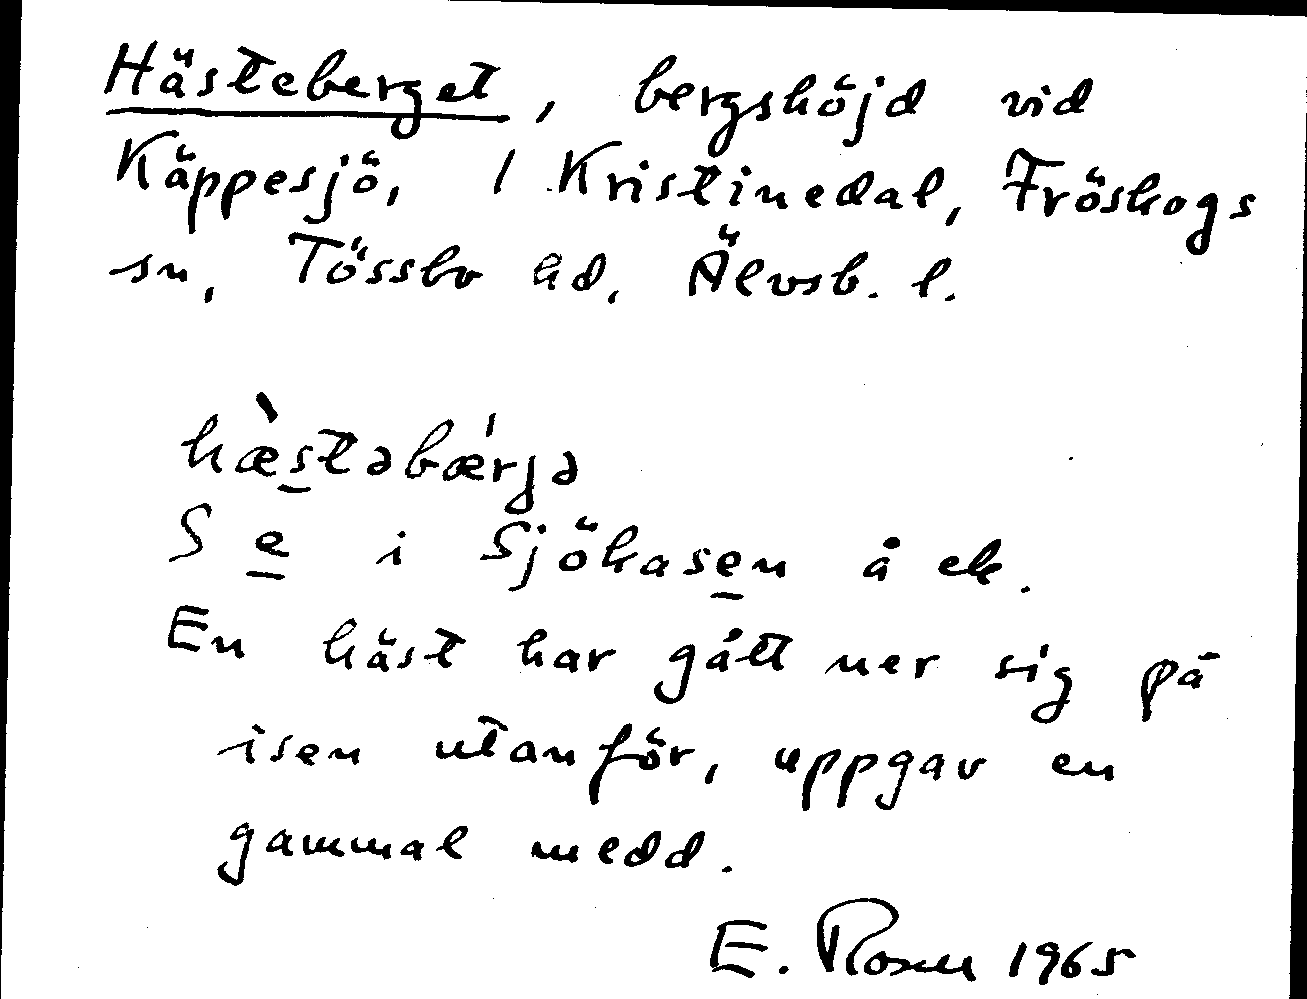 Hästeberget, bergshöjd vid
Käppesjö, 1 Kristinedal, Fröskogs
sn, Tössbo hd, Älvsb. l.
hæ̀stəbǽrjə
S e i Sjökasen å ek.
En häst har gått ner sig på
isen utanför, uppgav en
gammal medd.
E. Rosell 1965